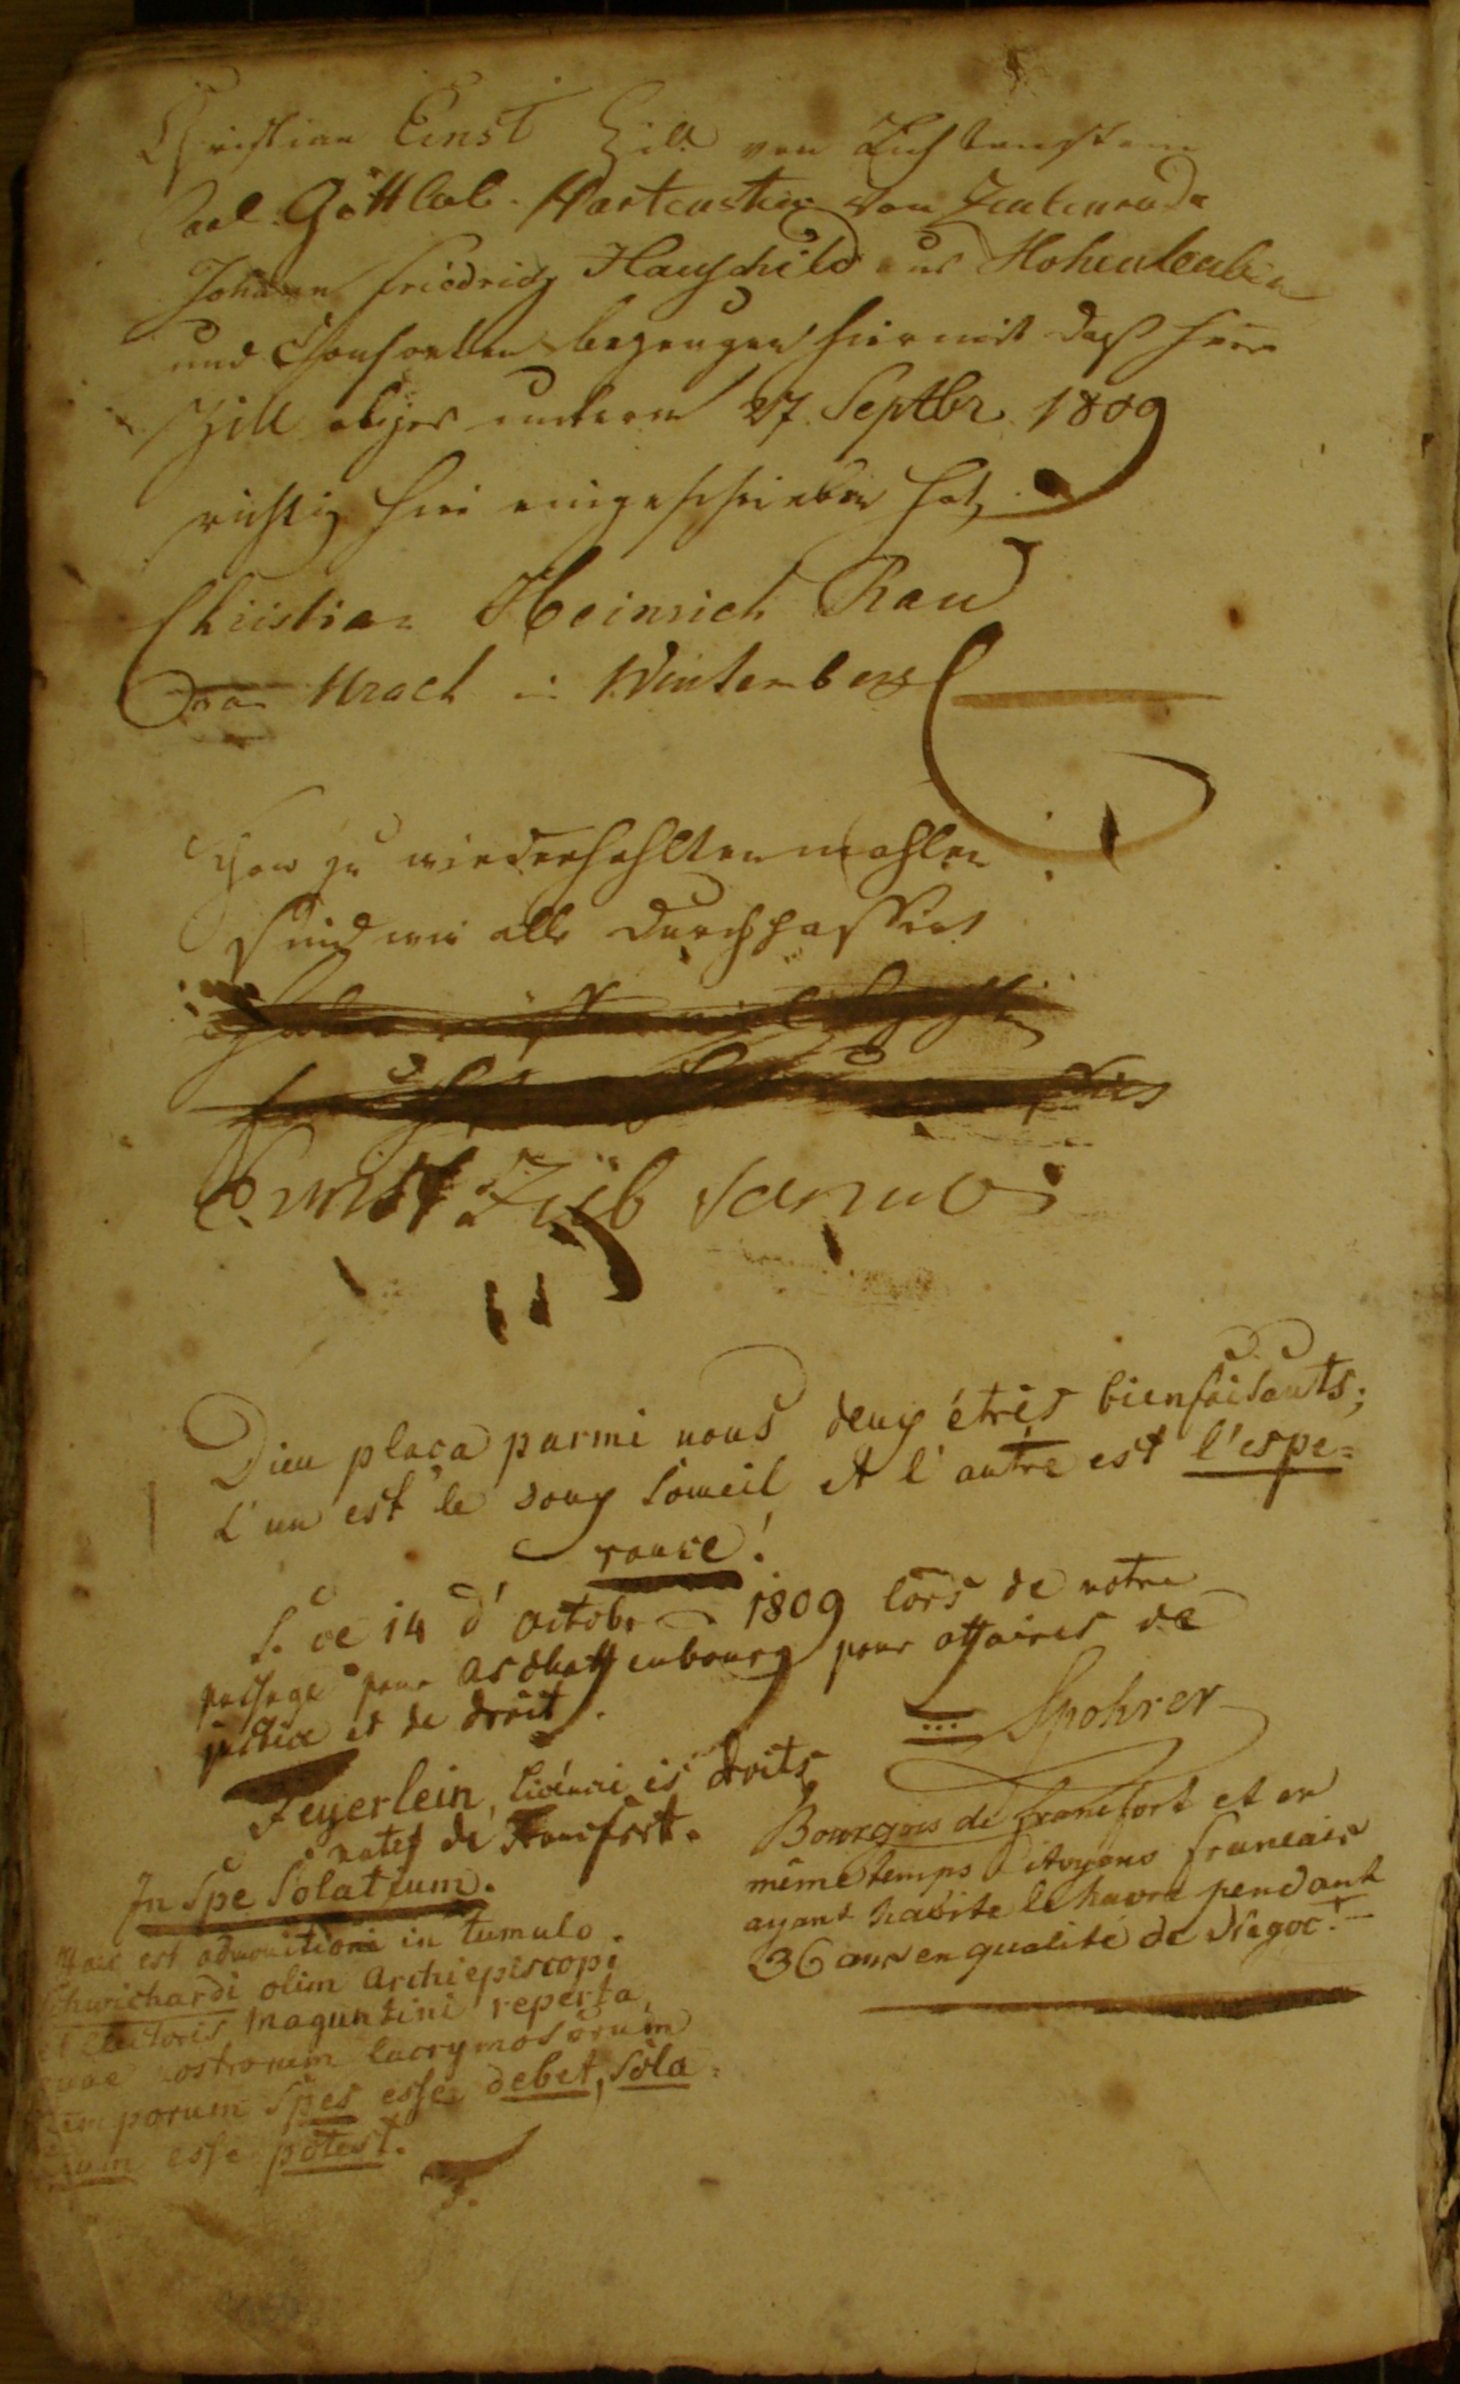 Christian Ernst Zill von Lichtenstein
Carl Gottlob Hartenstein von Zeulenroda
Johann Friedrich Hauschild aus Hohenleuben
und Consorten bezeugen hiermit daß Herr
Zill obiges unterm 27. Septbr. 1809
richtig hier eingeschrieben hat,
Christian Heinrich Rau
von Urach in Wirtemberg
zu wiederhohlten mahlen
sind wir alle durchpassirt
Ernst
Dieu plaça parmi nous deux étres bienfaisants;
L'un est le doux someil et l'autre est l'espe=
rance!
ce 14 d'Octobr 1809 lors de notre
passage pour Aschaffenbourg pour affaires de
justice et de droit.
Spohrer
Feyerlein, licencié és droits,
natif de Francfort.
Bourgois de francfort et en
même temps Citoyens francais
ayant habité le havre pendant
36 ans en qualité de Négoct.
In Spe Solatium.
Haec est admonitione in tumulo
olim Archiepiscopi
et Electoris Maguntini reperta,
quae nostrorum lacrymosorum
temporum Spes esse debet, Sola=
tium esse potest.
F.